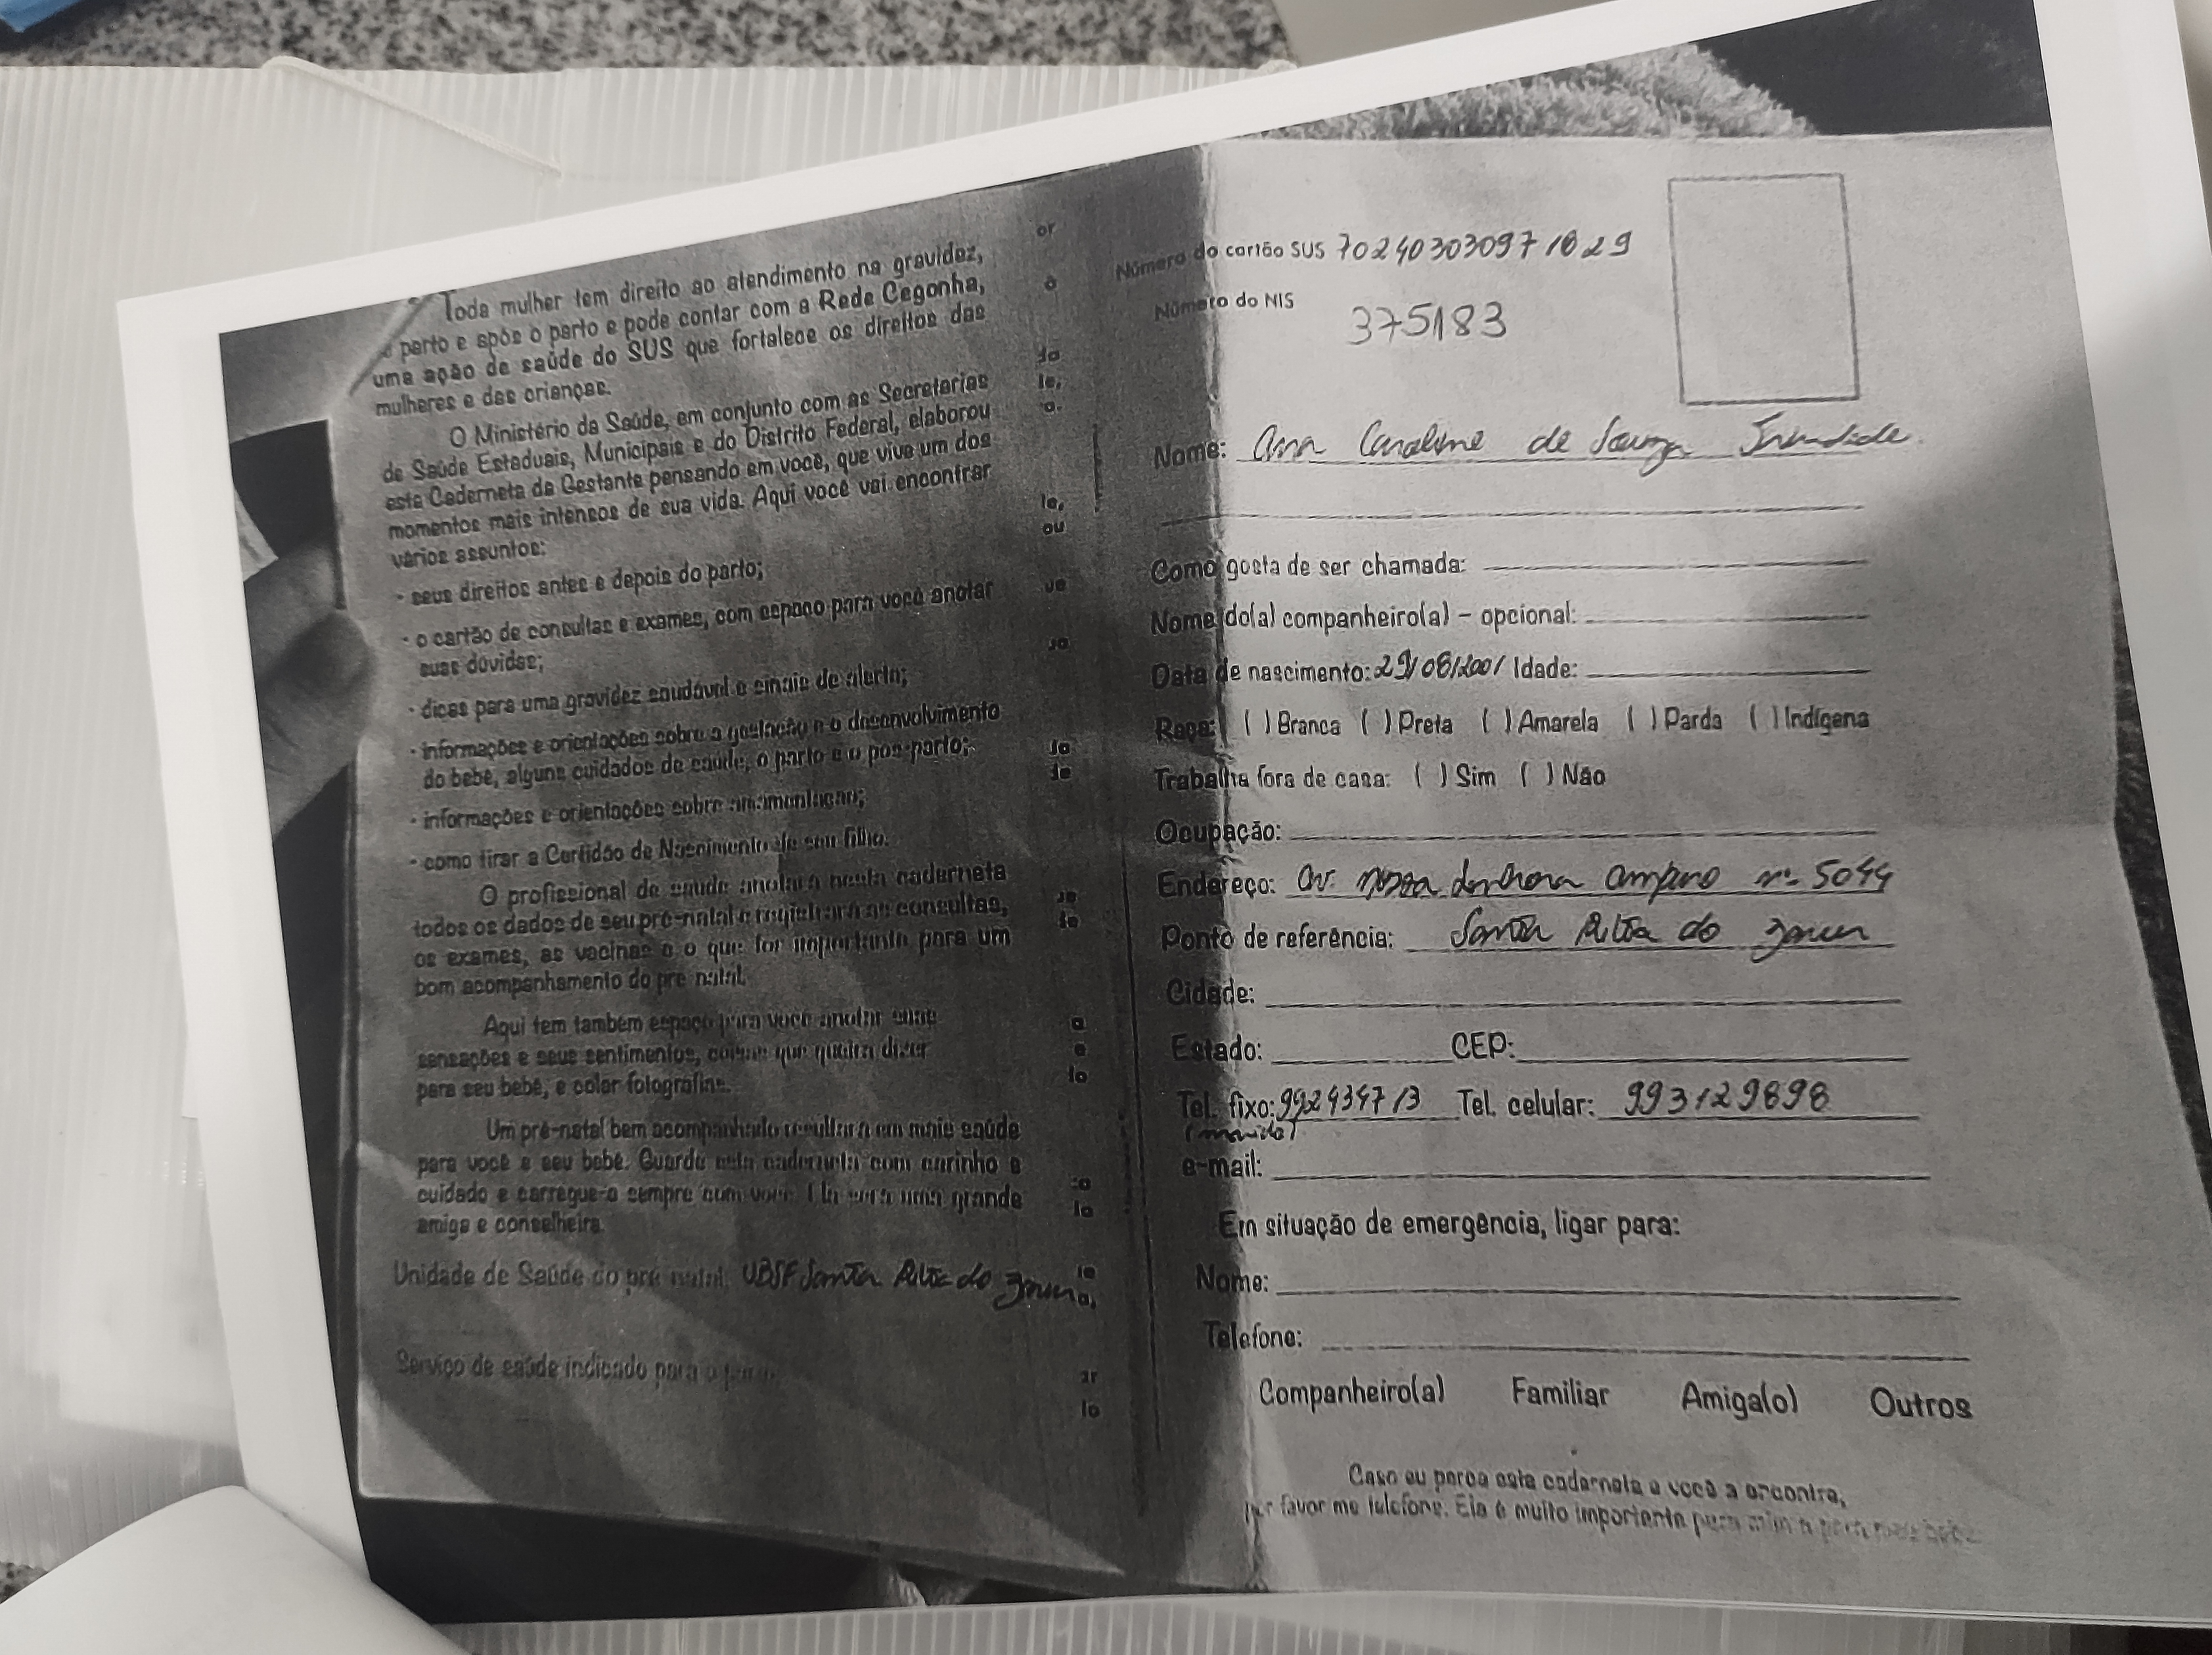 Toda mulher tem direito ao atendimento na gravidez,
o parto e após o parto e pode contar com a Rede Cegonha,
uma ação de saúde do SUS que fortalece os direitos das
mulheres e das crianças.
O Ministério da Saúde, em conjunto com as Secretarias
de Saúde Estaduais, Municipais e do Distrito Federal, elaborou
esta Caderneta da Gestante pensando em você, que vive um dos
momentos mais intensos de sua vida. Aqui você vai encontrar
vários assuntos:
• seus direitos antes e depois do parto;
• o cartão de consultas e exames, com espaço para você anotar
suas dúvidas;
• dicas para uma gravidez saudável e sinais de alerta;
• informações e orientações sobre a gestação e o desenvolvimento
do bebê, alguns cuidados de saúde, o parto e o pós-parto;
• informações e orientações sobre amamentação;
• como tirar a Certidão de Nascimento de seu filho.
O profissional de saúde anotará nesta caderneta
todos os dados de seu pré-natal e registrará as consultas,
os exames, as vacinas e o que for importante para um
bom acompanhamento do pré-natal.
Aqui tem também espaço para você anotar suas
sensações e seus sentimentos, coisas que queira dizer
para seu bebê, e colar fotografias.
Um pré-natal bem acompanhado resultará em mais saúde
para você e seu bebê. Guarde esta caderneta com carinho e
cuidado e carregue-a sempre com você. Ela será uma grande
amiga e conselheira.
Unidade de Saúde do pré-natal: UBSF Santa Rita do
Serviço de saúde indicado para o parto
Número do cartão SUS 702403030971829
Número do NIS
375183
Nome: Ana Caroline de Souza Trindade.
Como gosta de ser chamada:
Nome do(a) companheiro(a) – opcional:
Data de nascimento: 29/08/2001 Idade:
Raça: ( ) Branca ( ) Preta ( ) Amarela ( ) Parda ( ) Indígena
Trabalha fora de casa: ( ) Sim ( ) Não
Ocupação:
Endereço: Av. nossa senhora amparo nº 5044
Ponto de referência: Santa Rita do
Cidade:
Estado: CEP:
Tel. fixo: 992434713 Tel. celular: 993129898
(marido)
e-mail:
Em situação de emergência, ligar para:
Nome:
Telefone:
Companheiro(a) Familiar Amiga(o) Outros
Caso eu perca esta caderneta e você a encontre,
por favor me telefone. Ela é muito importante para mim e para meu bebê.